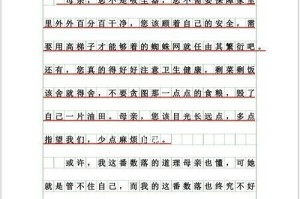 母亲，您不是吸尘器，您不需要保障家里
里外外百分百干净，您该顾着自己的安全。需
要用高梯子才能够着的蜘蛛网就任由其繁衍吧。
还有，您真的得好好注意卫生健康。剩菜剩饭
该舍就得舍，不要贪图那一点点的食粮，毁了
自己一片油田。母亲，您该目光长远点，多点
指望我们，少点麻烦自己。
或许，我这番数落的道理母亲也懂，可她
就是管不住自己，而我的这番数落也终究不好